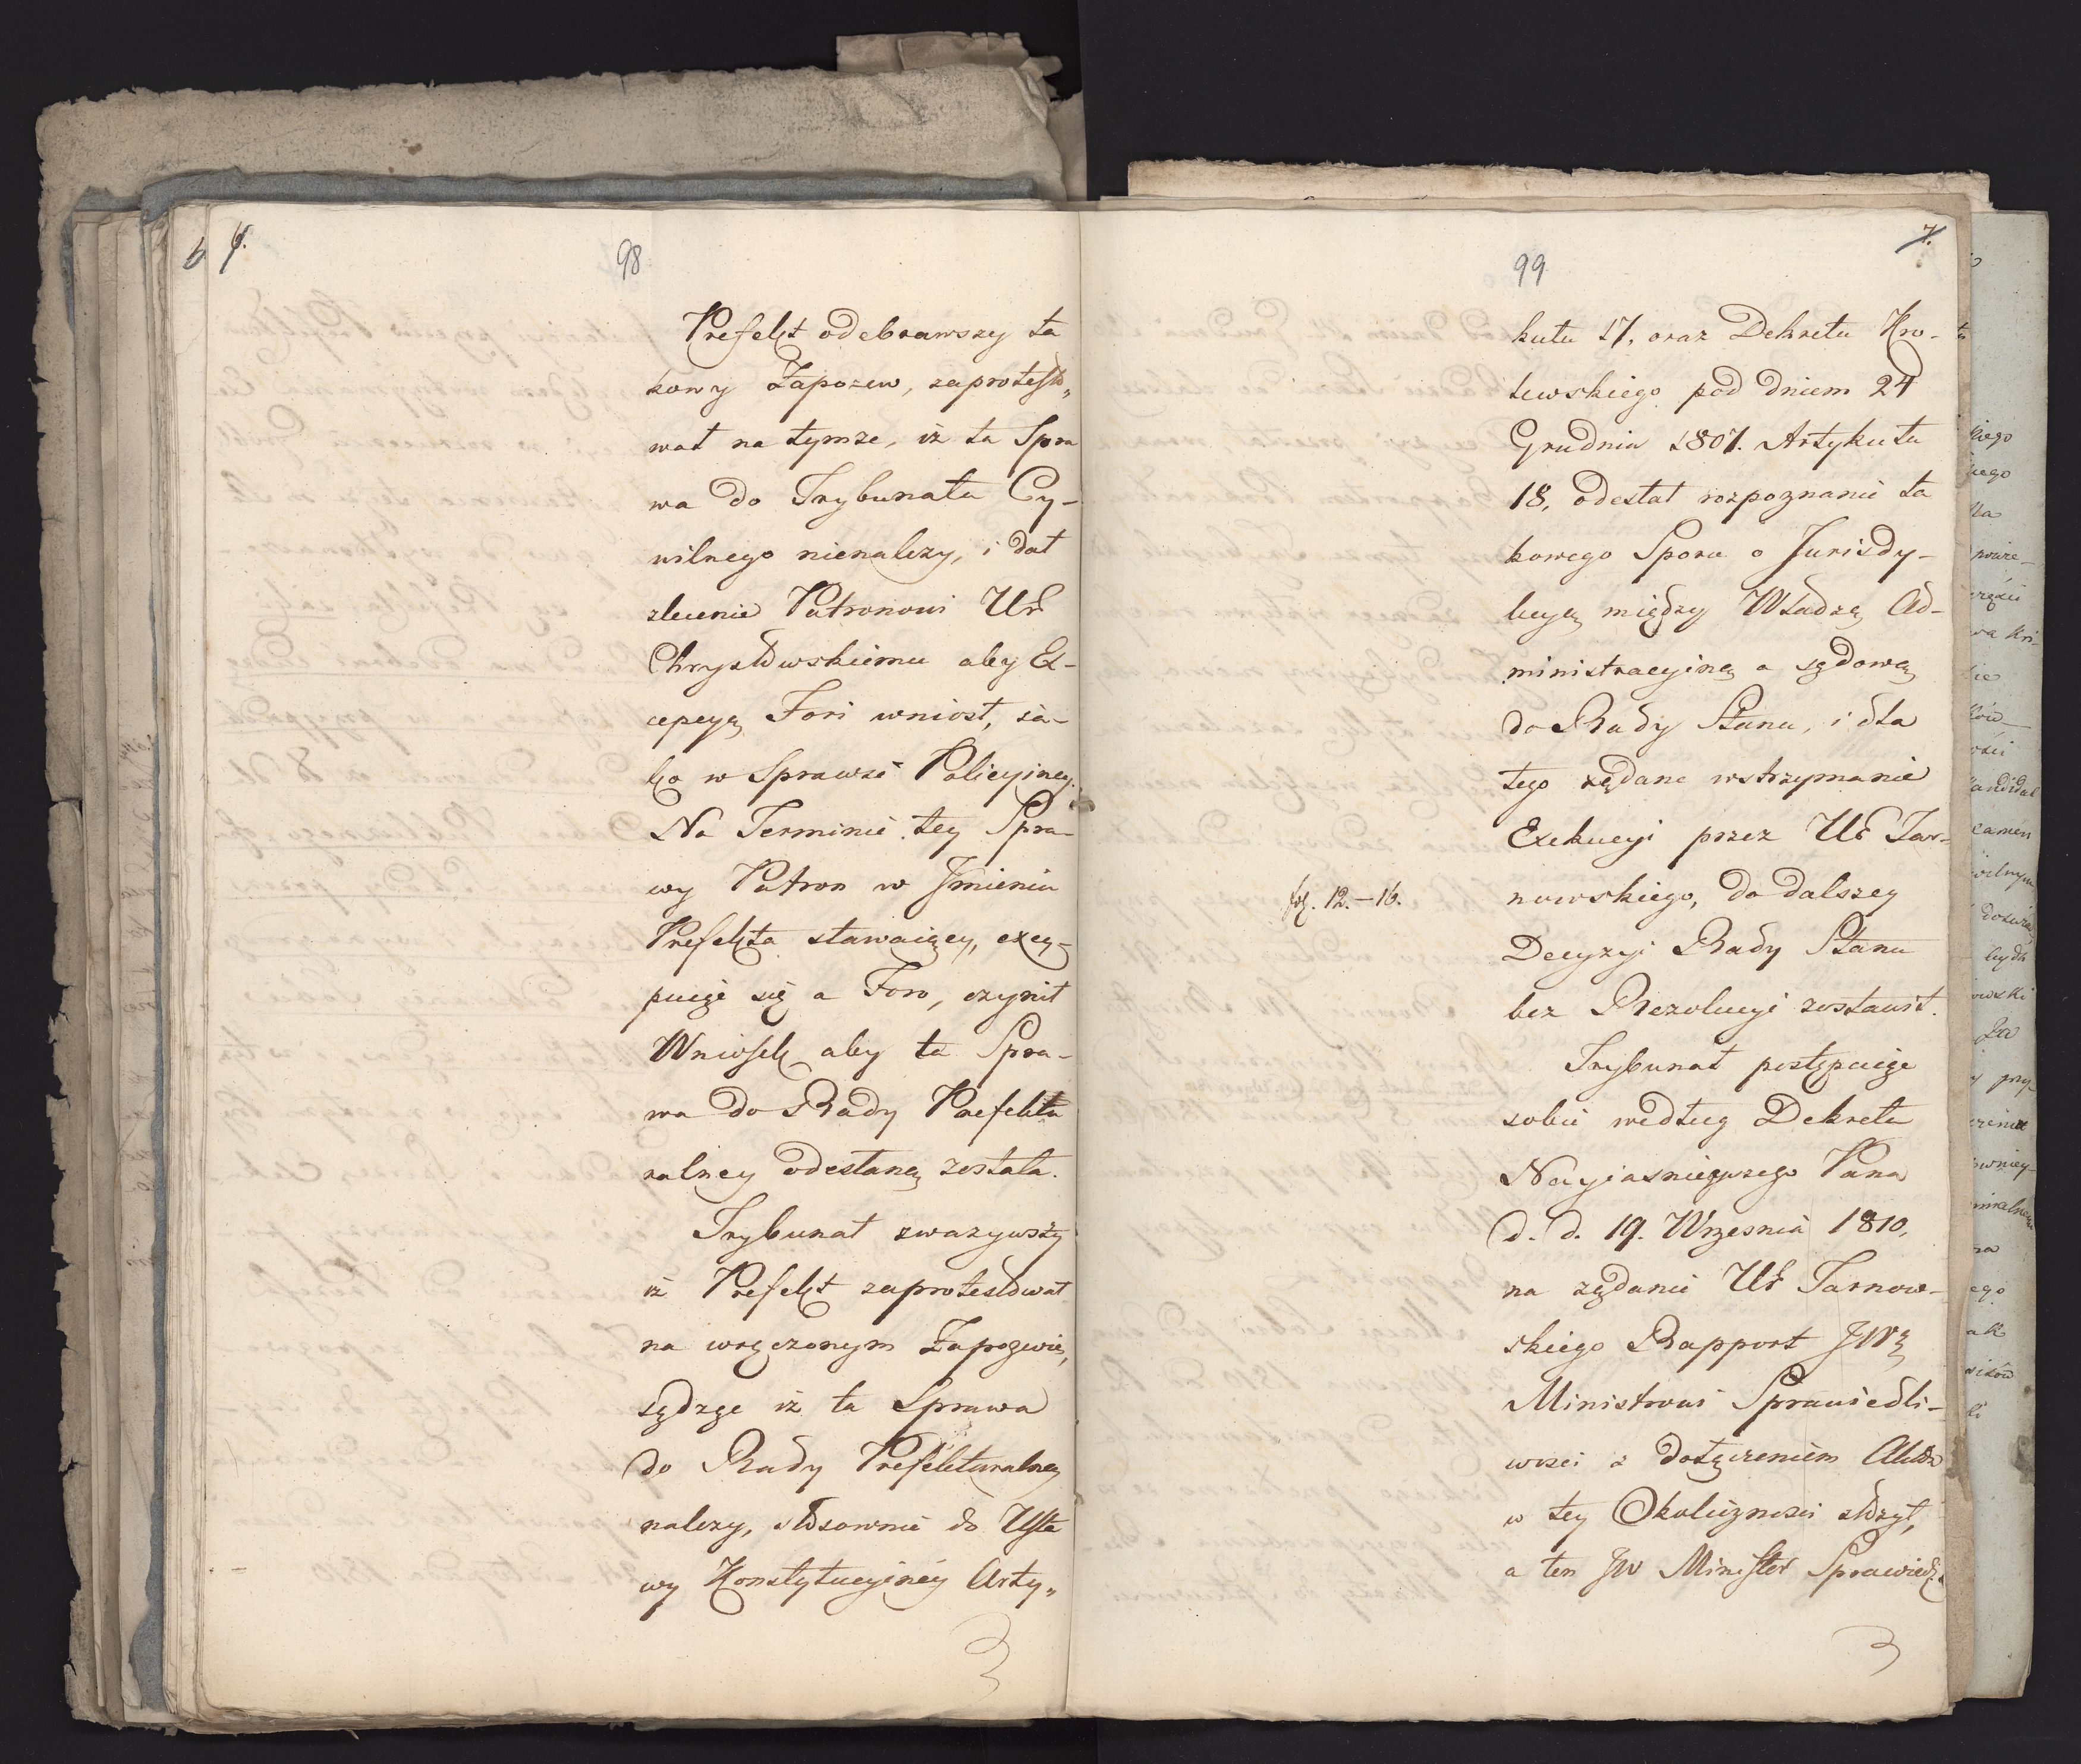 6 6.
98
Prefekt odebrawszy ta
kowy Zapozew, zaprotesto„
wał na tymże, iż ta Spra
wa do Trybunału Cy-
wilnego nienależy, i dał
zlecenie Patronowi Ur
Chrystowskiemu aby Ex-
cepcyą Fori wniósł, ja-
ko w Sprawie Policyiney.
Na Terminie tey Spra-
wy Patron w Jmieniu
Prefekta stawaiący, excy-
puiąc się a Foro, czynił
Wniosek aby ta Spra-
wa do Rady Prefektu
ralney odesłaną została.
Trybunał zważywszy
iż Prefekt zaprotestował
na wręczonym Zapozwie,
sądząc iż ta Sprawa
do Rady Prefekturalney
należy, stosownie do Usta
wy Konstytucyiney Arty„
7.
99
kułu 17, oraz Dekretu Kro-
lewskiego pod dniem 24
Grudnia 1807. Artykułu
18, odesłał rozpoznanie ta
kowego Sporu o Jurisdy-
kcyą między Władzą Ad-
ministracyiną a sądową
do Rady Stanu, i dla
tego żądane wstrzymanie
Exekucyi przez Ur Tar-
nowskiego, do dalszey
fol. 12.-16.
Decyzyi Rady Stanu
bez Rezolucyi zostawił.
Trybunał postępuiąc
sobie według Dekretu
Nayiasnieyszego Pana
d. d. 19. Wrzesnia 1810,
na żądanie Ur Tarnow-
skiego Rapport JW
Ministrowi Sprawiedli-
wosci z dołączeniem Aktów
w tey Okoliczności złożył,
a ten JW Minister Sprawiedl.